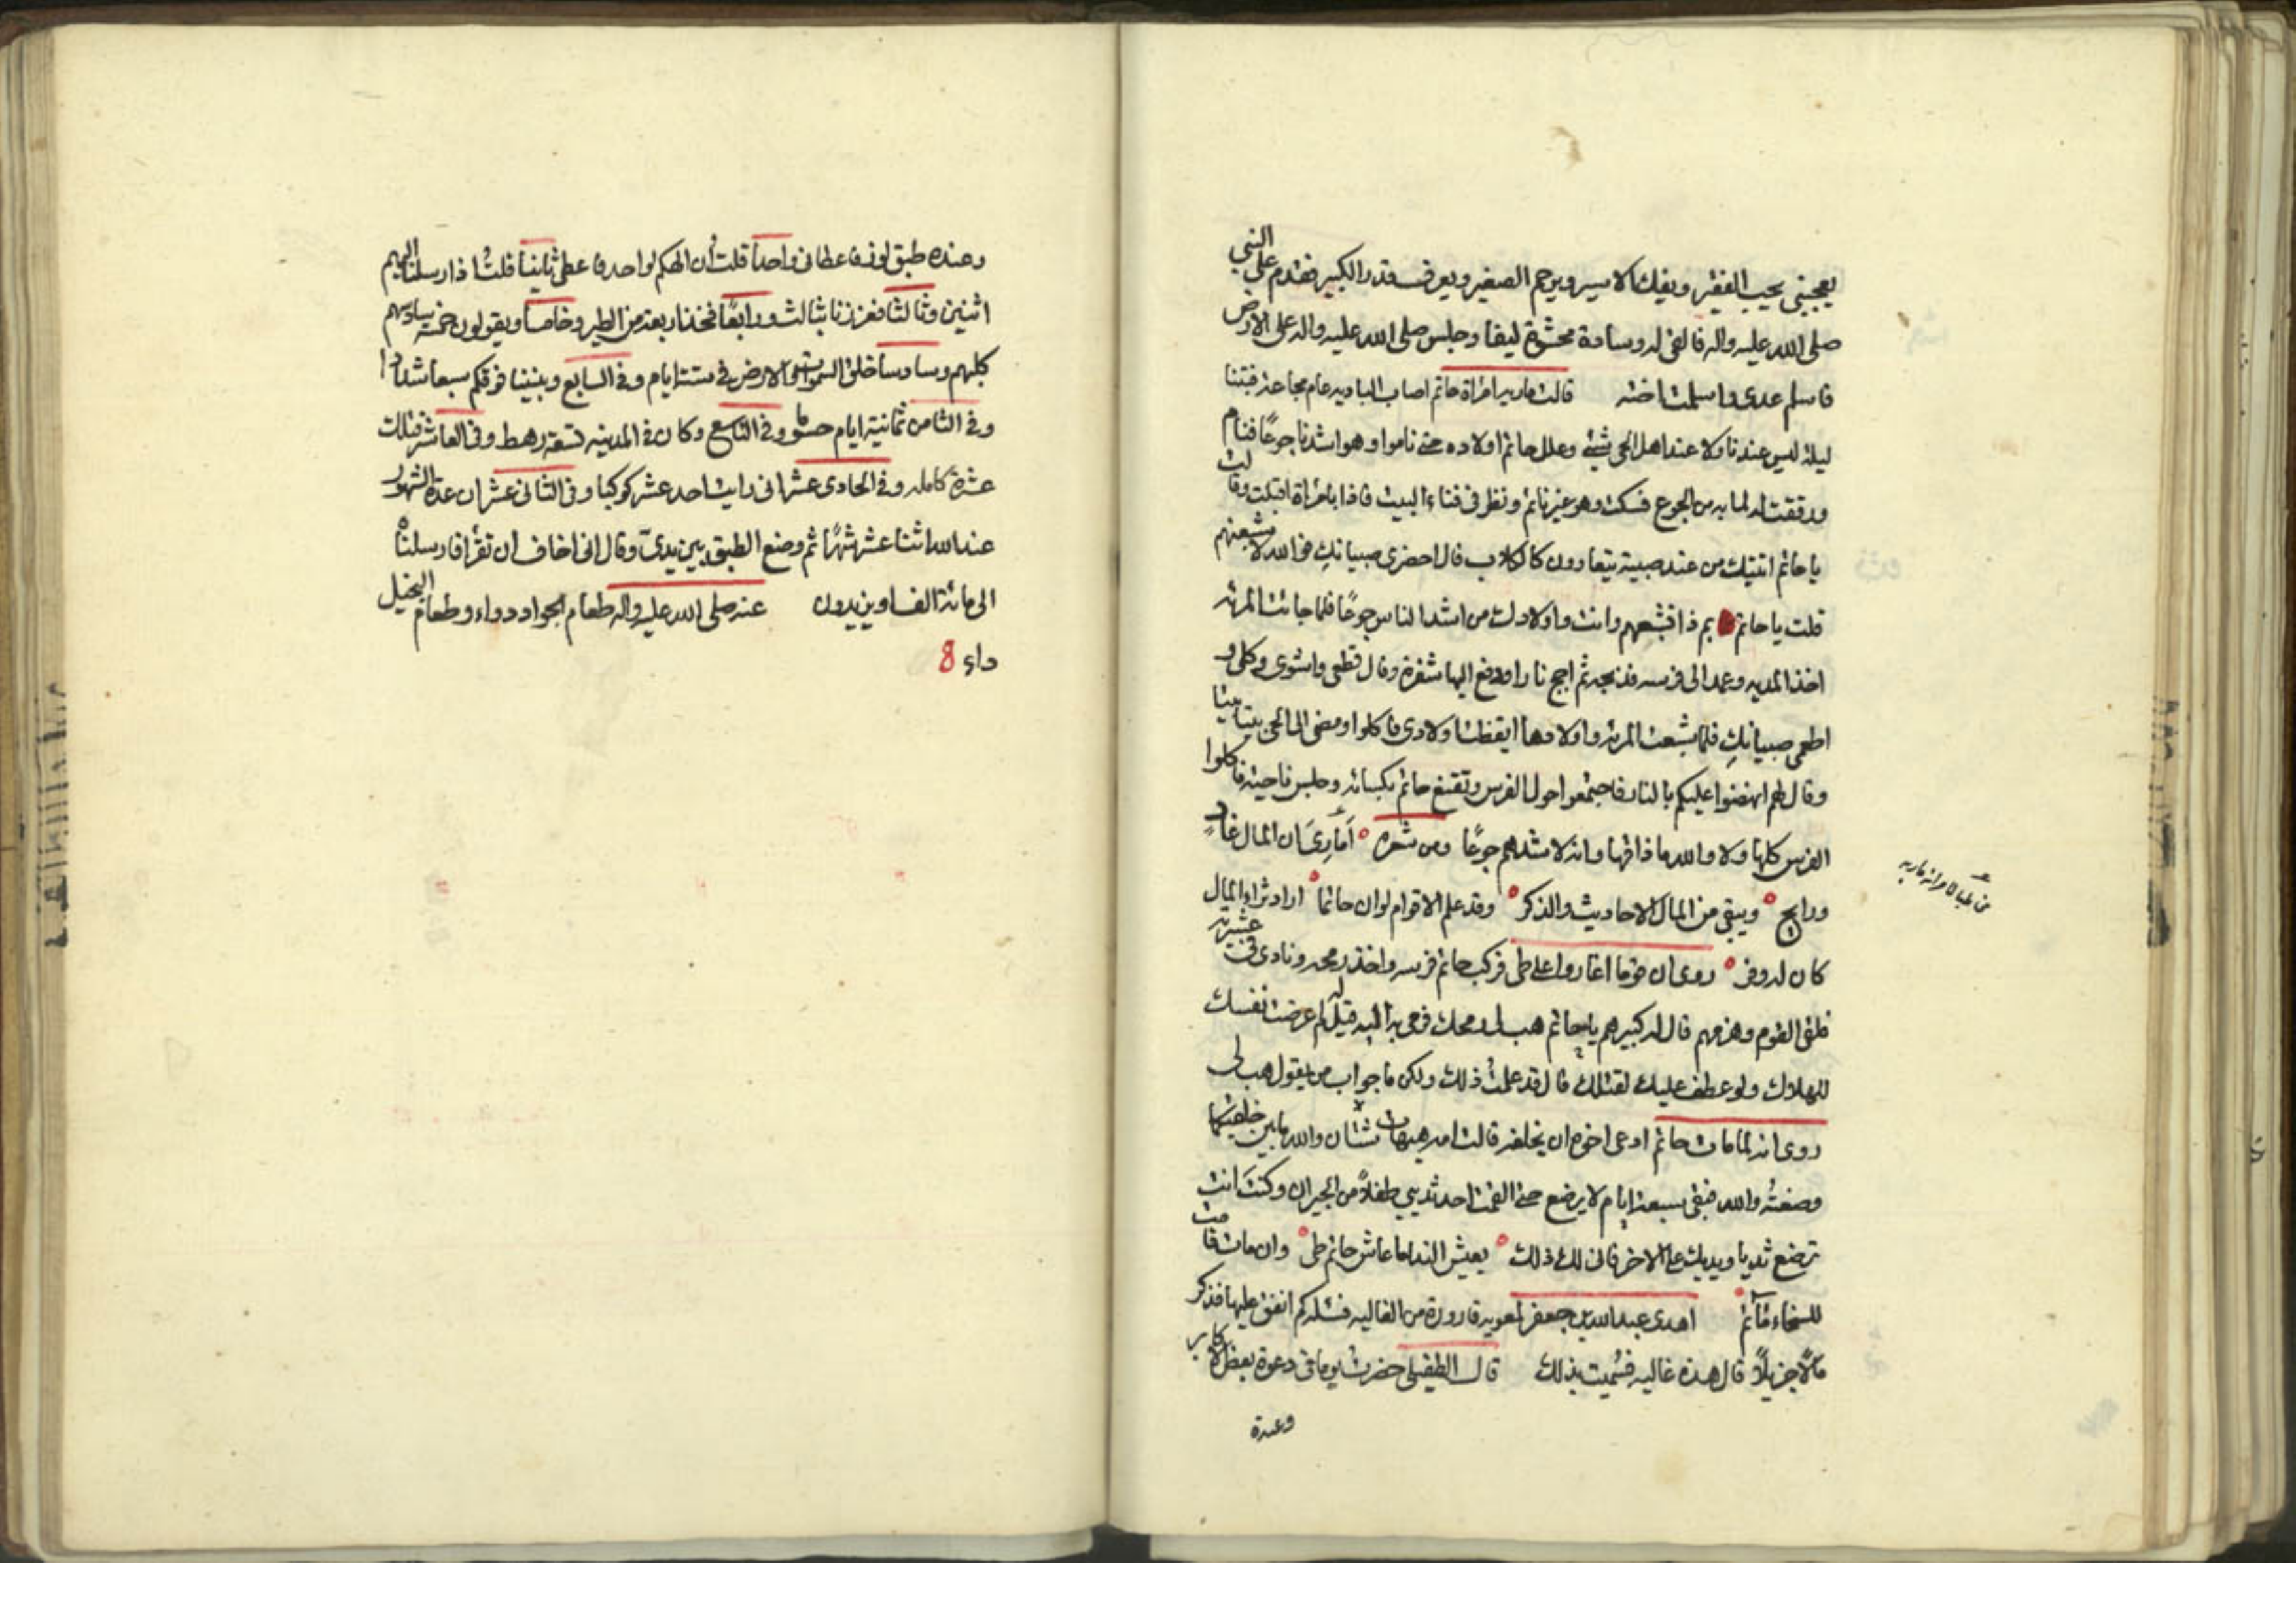 يعجبني يحب الفقير ويفك الاسير ويرحم الصغير ويعرف قدر الكبير فقدم على النبي
صلى الله عليه واله فالقى له وسادة محشوة ليفا وجلس صلى الله عليه واله على الارض
فاسلم عدى واسلمت اخته قالت ماريه امراة حاتم اصاب الباديه عام مجاعة فبتنا
ليلة ليس عندنا ولا عند اهل الحى شيئ وعلل حاتم اولاده حتى ناموا وهو اشدنا جوعًا فنام
ورققت له لما به من الجوع فسكت وهو غير نائم ونظر فى فناء البيت فاذا بامراة اقبلت وقالت
يا حاتم اتيتك من عند صبية يتعاوون كالكلاب قال احضرى صبيانكِ فوالله لاشبعنهم
قلت يا حاتم بم ذا تشبعهم وانت واولادك من اشد الناس جوعًا فلما جائت المرئه
اخذ المديه وعمد الى فرسه فذبحه ثم اجج نارا ودفع اليها شفرة وقال قطعى واشوى وكلى و
اطعمى صبيانكِ فلما شبعت المرئه واولادها ايقظت اولادى فاكلوا ومضى الى الحى بيتا بيتا
وقال لهم انهضوا عليكم بالنار فاجتمعوا حول الفرس وتقنع حاتم بكسائه وجلس ناحية فاكلوا
الفرس كلها ولا والله ما ذاقها وانه لاشدهم جوعًا ومن شعره اَمَاوِىَّ ان المال غادٍ
ورايح ويبقى من المال الاحاديث والذكر وقد علم الاقوام لو ان حاتما اراد ثراء المال
كان له وفر روى ان قوما اغاروا على طى فركب حاتم فرسه واخذ رمحه ونادى فى عشيرته
فلقى القوم وهزمهم قال له كبيرهم يا حاتم هب لى رمحك فرمى به اليه قيل له لم عرضت نفسك
للهلاك ولو عطف عليك لقتلك قال قد علمتُ ذلك ولكن ما جواب من يقول هب لى
روى انه لما مات حاتم ادعى اخوه ان يخلفه قالت امه هيهات شتان والله ما بين خلقتيكما
وضعتُه والله فبقى سبعة ايام لا يرضع حتى القمت احد ثديي طفلاً من الجيران وكنتَ انت
ترضع ثديا ويديك على الاخر فانى لك ذلك يعيش الندا ما عاش حاتم طى وان مات قامت
للسخاء مآتم اهدى عبدالله بن جعفر لمعويه قارورة من الغاليه فسئله كم انفق عليها فذكر
مالاً جزيلاً قال هذه غاليه فسُميت بذلك قال الطفيلى حضرت يوما فى دعوة بعض الاكابر
وعنده
وعنده طبق لوز فاعطانى واحداً قلت أن الهكم لواحد فاعطى ثانيناً قلت اذ ارسلنا اليهم
اثنين وثالثا فعززنا بثالث ورابعًا فخذ اربعة من الطير وخامسا ويقولون خمسة سادسهم
كلبهم وسادسا خلق السموات والارض فى ستة ايام وفى السابع وبنينا فوقكم سبعا شدادا
وفى الثامن ثمانية ايام حسوما وفى التاسع وكان فى المدينه تسعة رهط وفى العاشر فتلك
عشرة كامله وفى الحادى عشر انى رايت احد عشر كوكبا وفى الثانى عشر ان عدة الشهور
عند الله اثنا عشر شهرًا ثم وضع الطبق بين يدىّ وقال انى اخاف ان تقرأ فارسلناه
الى مائة الف او يزيدون عنه صلى الله عليه واله طعام الجواد دواء وطعام البخيل
داء